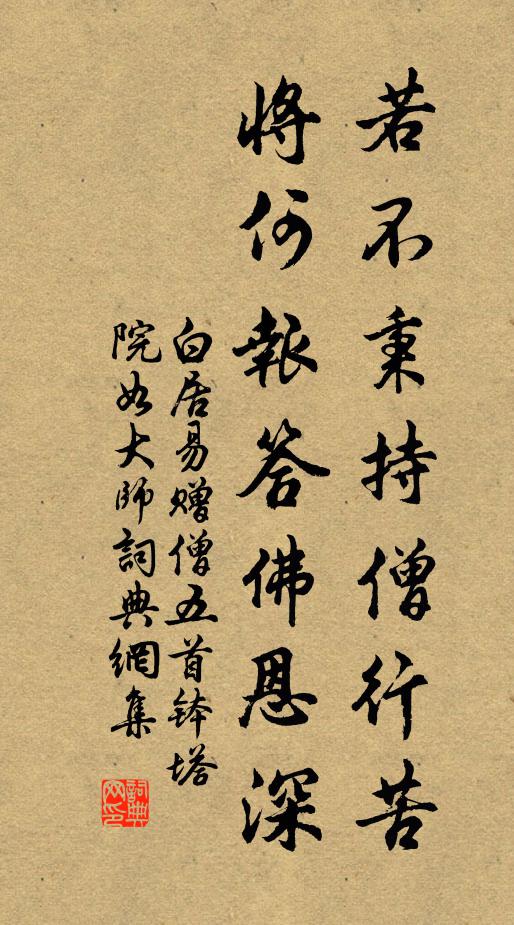 若不秉持僧行苦
將何報答佛恩深
白居易贈僧五首鉢塔
院如大師詞典網集
詞典
网印